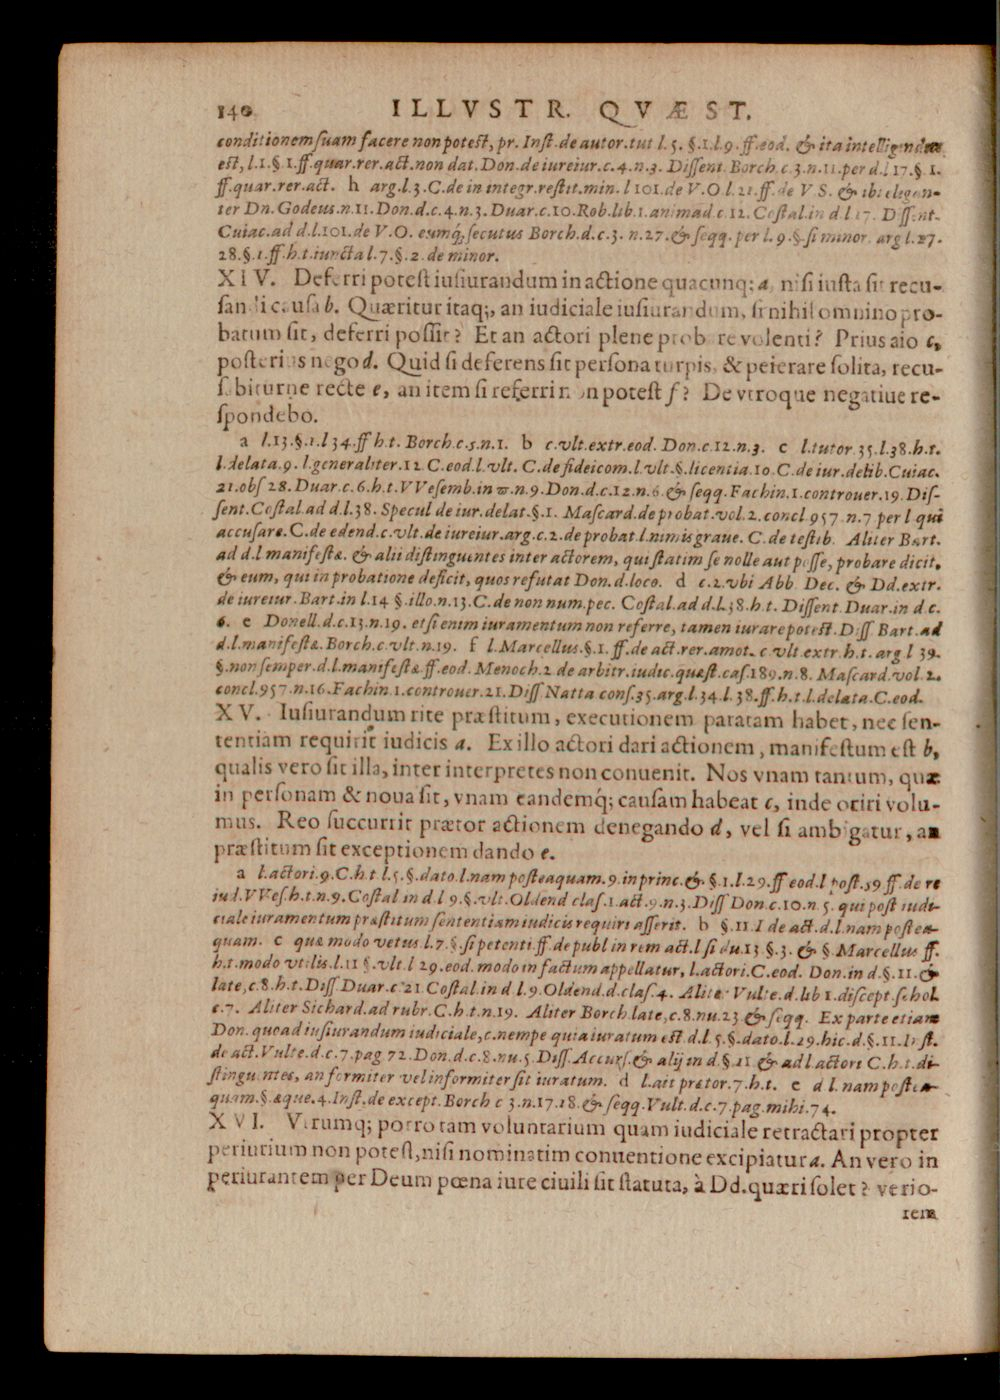 140 ILLVSTR. QVÆST.
conditionem ſuam facere non poteſt, pr. Inſt. de autor. tut l. 5. §. 1. l. 9. ff. eod. & ita intelligendum
eſt, l. 1. § 1. ff. quar. rer. act. non dat. Don. de iureiur. c. 4. n. 3. Diſſent. Borch. c. 3. n. 11. per d. l 17. §. 1.
ff. quar. rer. act. h arg. l. 3. C. de in integr. reſtit. min. l 101. de V. O l. 21. ff. de V S. & ibi elegan-
ter Dn. Godeus. n. 11. Don. d. c. 4. n. 3. Duar. c. 10. Rob. lib. 1. animad. c. 12. Coſtal. in d l 17. Diſſent.
Cuiac. ad d. l. 101. de V. O. eumq́; ſecutus Borch. d. c. 3. n. 27. & ſeqq. per l. 9. §. ſi minor. arg l. 27.
28. §. 1. ff. h. t. iuncta l. 7. §. 2. de minor.
XIV. Deferri poteſt iuſiurandum in actione quacunq; a, niſi iuſta ſit recu-
ſandi cauſa b. Quæritur itaq;, an iudiciale iuſiurandum, ſi nihil omnino pro-
batum ſit, deferri poſſit? Et an actori plene probare volenti? Prius aio c,
poſterius nego d. Quid ſi deferens ſit perſona turpis, & peierare ſolita, recu-
ſabiturne recte e, an item ſi referri non poteſt f? De vtroque negatiue re-
ſpondebo.
a l. 13. §. 1. l 34. ff h. t. Borch. c. 5. n. 1. b c. vlt. extr. eod. Don. c. 12. n. 3. c l. tutor. 35. l. 38. h. t.
l. delata. 9. l. generaliter. 12 C. eod. l. vlt. C. de fideicom. l. vlt. §. licentia. 10. C. de iur. delib. Cuiac.
21. obſ 28. Duar. c. 6. h. t. VVeſemb. in ϖ. n. 9. Don. d. c. 12. n. 6. & ſeqq. Fachin. 1. controuer. 19. Diſ-
ſent. Coſtal. ad d. l. 38. Specul de iur. delat. §. 1. Maſcard. de probat. vol. 2. concl 957. n. 7 per l qui
accuſare. C. de edend. c. vlt. de iureiur. arg. c. 2. de probat. l. nimis graue. C. de teſtib. Aliter Bart.
ad d. l manifeſtæ. & alii diſtinguentes inter actorem, qui ſtatim ſe nolle aut poſſe, probare dicit,
& eum, qui in probatione deficit, quos refutat Don. d. loco. d c. 2. vbi Abb. Dec. & Dd. extr.
de iureiur. Bart. in l. 14 §. illo. n. 13. C. de non num. pec. Coſtal. ad d. l. 38. h. t. Diſſent. Duar. in d. c.
6. e Donell. d. c. 13. n. 19. etſi enim iuramentum non referre, tamen iurare poteſt. Diſſ. Bart. ad
d. l. manifeſtæ. Borch. c. vlt. n. 19. f l. Marcellus. §. 1. ff. de act. rer. amot. c. vlt. extr. h. t. arg. l 39.
§. non ſemper. d. l. manifeſtæ ff. eod. Menoch. 2 de arbitr. iudic. quæſt. caſ. 189. n. 8. Maſcard. vol. 2.
concl. 957. n. 16. Fachin. 1. controuer. 21. Diſſ. Natta conſ. 35. arg. l. 34. l. 38. ff. h. t. l. delata. C. eod.
XV. Iuſiurandum rite præſtitum, executionem paratam habet, nec ſen-
tentiam requirit iudicis a. Ex illo actori dari actionem, manifeſtum eſt b,
qualis vero ſit illa, inter interpretes non conuenit. Nos vnam tantum, quæ
in perſonam & noua ſit, vnam eandemq́; cauſam habeat c, inde oriri volu-
mus. Reo ſuccurrit prætor actionem denegando d, vel ſi ambigatur, an
præſtitum ſit exceptionem dando e.
a l. actori. 9. C. h. t l. 5. §. dato. l. nam poſteaquam. 9. in princ. & §. 1. l. 29. ff eod. l poſt. 59 ff. de re
iud. VVeſ. h. t. n. 9. Coſtal in d l 9. §. vlt. Oldend claſ. 1. act. 9. n. 3. Diſſ Don. c. 10. n 5. qui poſt iudi-
ciale iuramentum præſtitum ſententiam iudicis requiri aſſerit. b §. 11. I de act. d. l. nam poſtea-
quam. c quæ modo vetus. l. 7. §. ſi petenti. ff. de publ in rem act. l ſi du. 13 §. 3. & §. Marcellus ff.
h. t. modo vtilis. l. 11 §. vlt. l 29. eod. modo in factum appellatur, l. actori. C. eod. Don. in d. §. 11. &
late, c. 8. h. t. Diſſ. Duar. c 21 Coſtal. in d l. 9. Oldend. d. claſ. 4. Aliter Vulte. d. lib 1. diſcept. ſchol.
c. 7. Aliter Sichard. ad rubr. C. h. t. n. 19. Aliter Borch. late, c. 8. nu. 23 & ſeqq. Ex parte etiam
Don. quoad iuſiurandum iudiciale, c. nempe quia iuratum eſt d. l. 5. §. dato. l. 29. hic. d. §. 11. Inſt.
de act. Vulte. d. c. 7. pag. 72. Don. d. c. 8. nu. 5 Diſſ. Accurſ. & alij in d. §. 11 & ad l actori C. h. t. di-
ſtinguentes, an formiter vel informiter ſit iuratum. d l. ait prætor. 7. h. t. e d l. nam poſtea-
quam. §. æque. 4. Inſt. de except. Borch c 3. n. 17. 18. & ſeqq. Vult. d. c. 7. pag. mihi. 74.
XVI. Vtrumq; porro tam voluntarium quam iudiciale retractari propter
periurium non poteſt, niſi nominatim conuentione excipiatur a. An vero in
periurantem per Deum pœna iure ciuili ſit ſtatuta, à Dd. quæri ſolet? verio-
rem